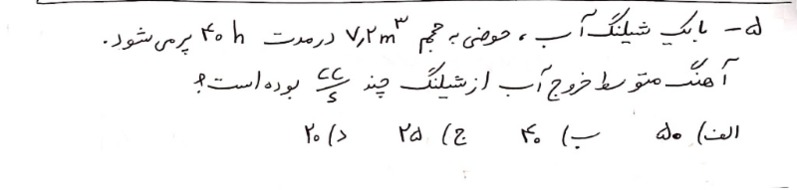 ۵- با یک شیلنگ آب، حوضی به حجم ۷٫۲m³ در مدت ۴۰h پر می‌شود.
آهنگ متوسط خروج آب از شیلنگ چند cc/s بوده است؟
الف) ۵۰ ب) ۴۰ ج) ۲۵ د) ۲۰